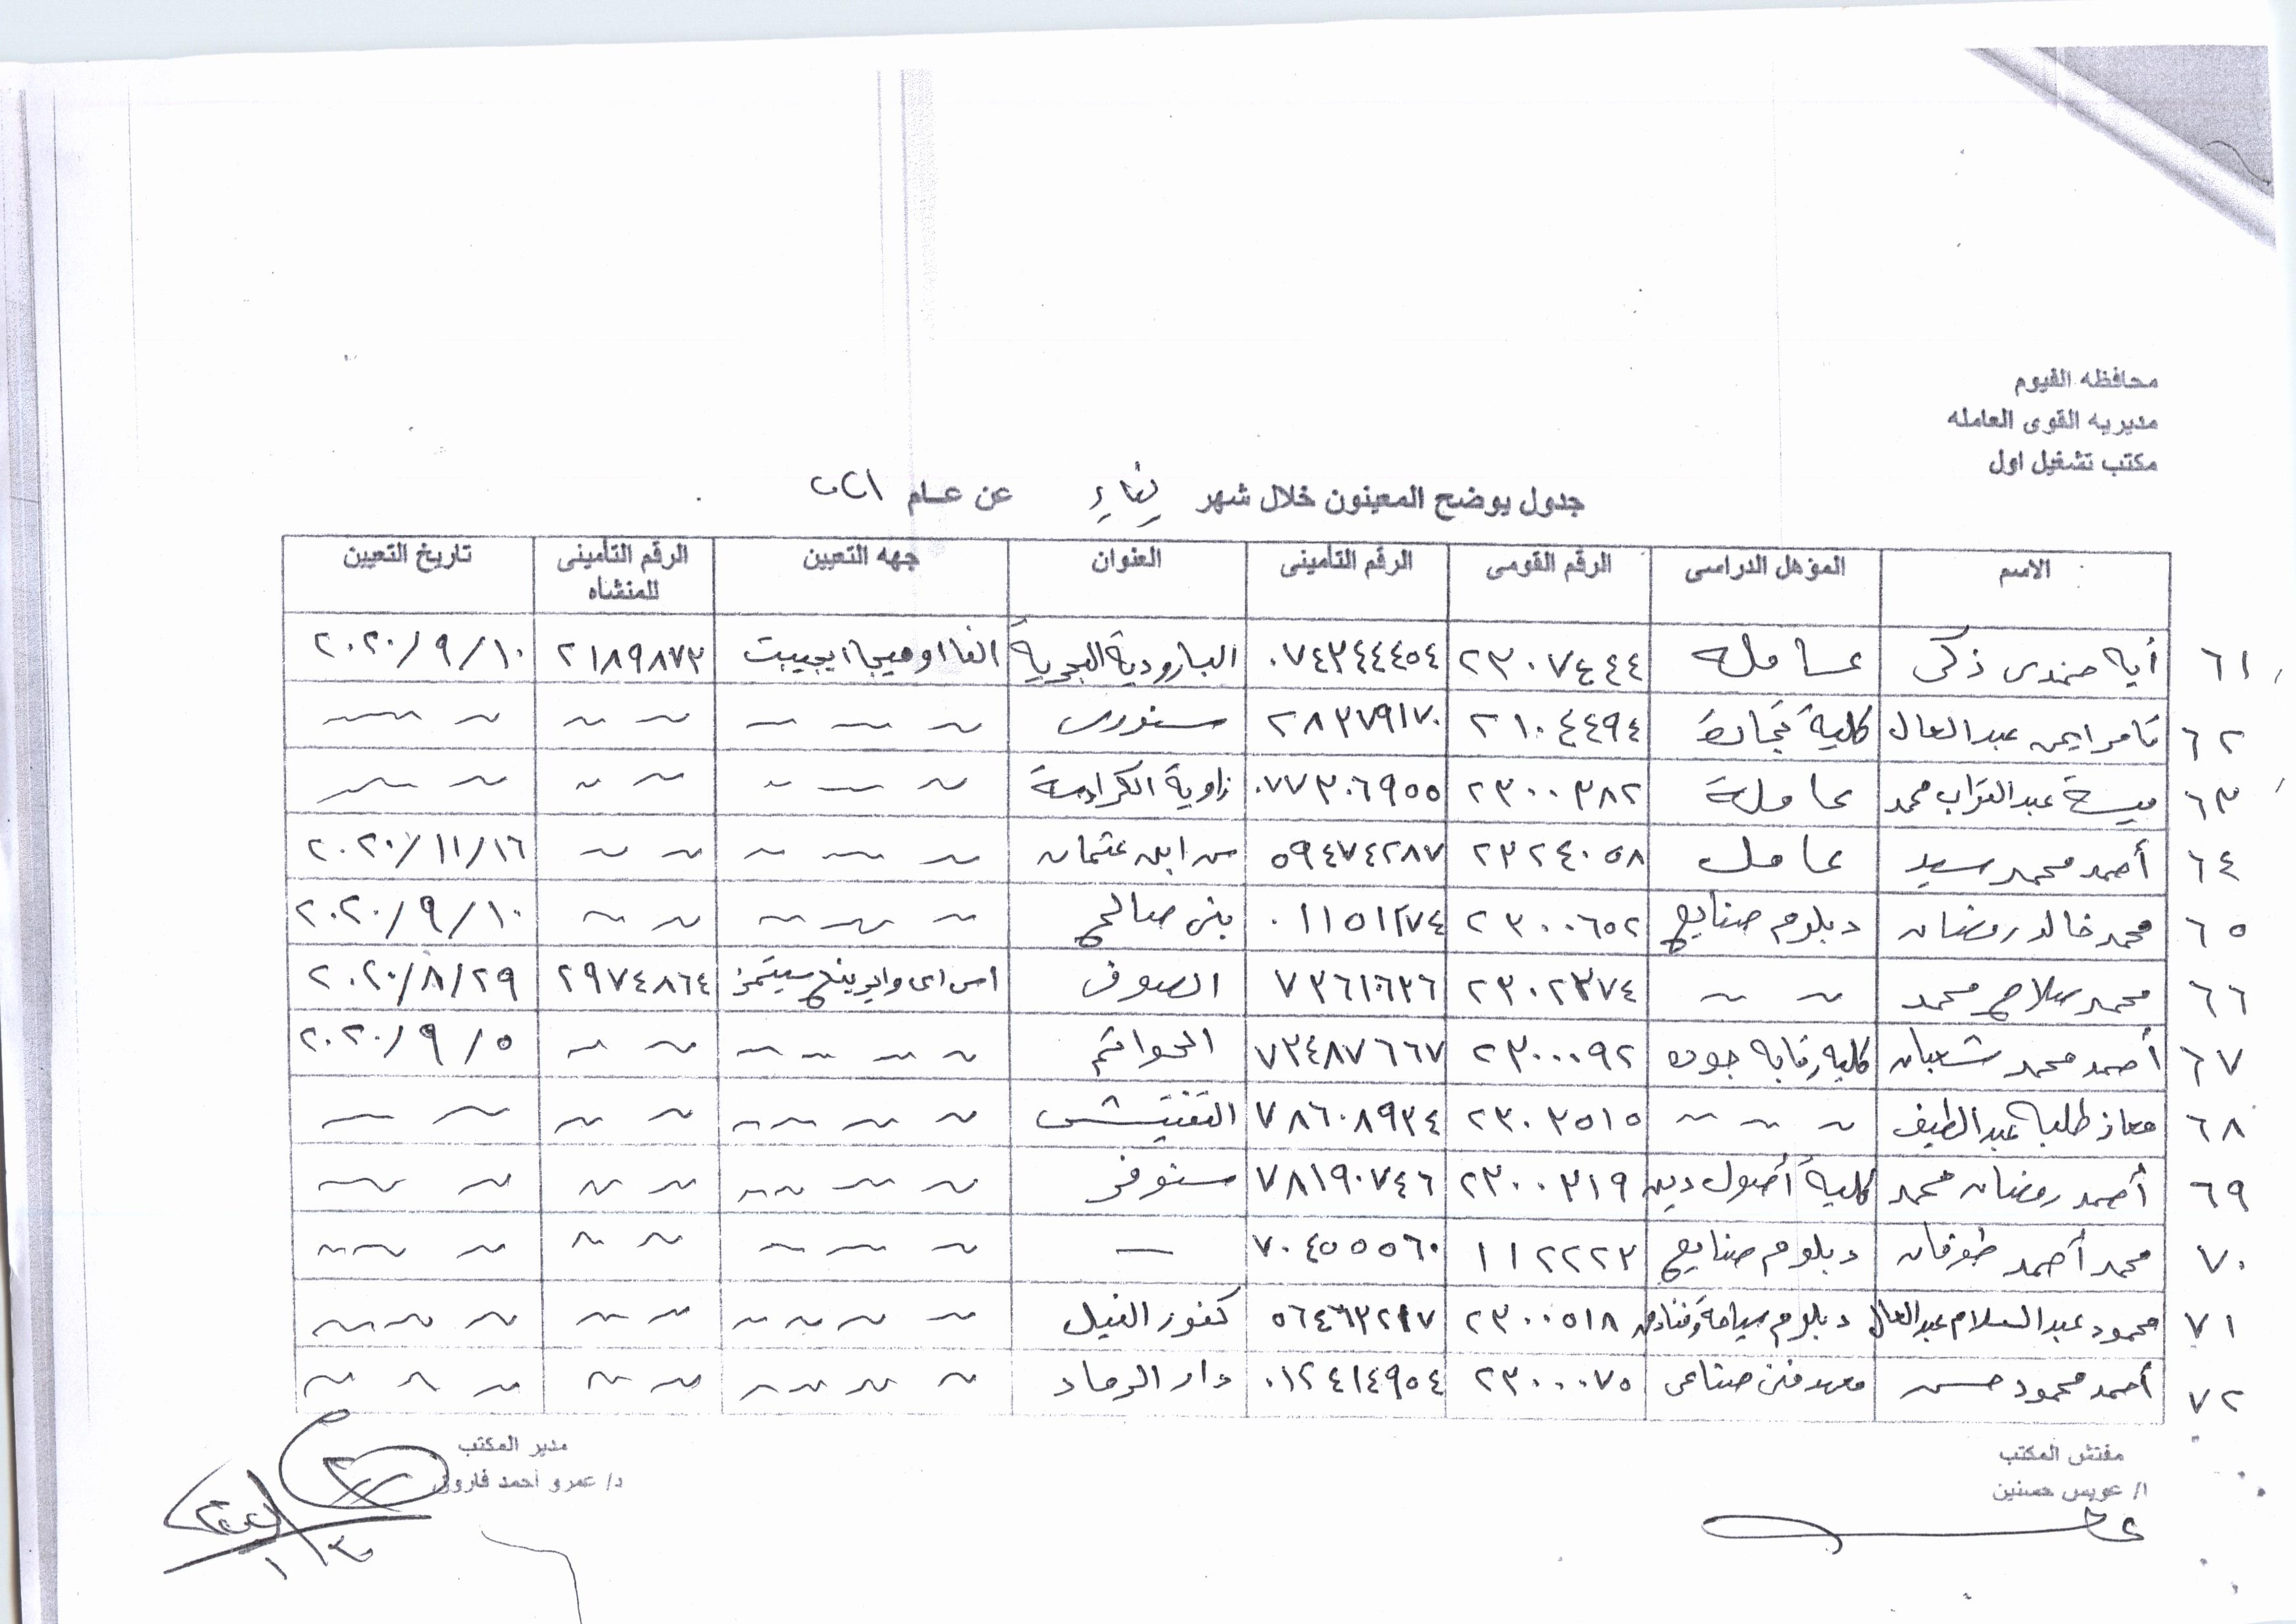 محافظه الفيوم
مديريه القوى العامله
مكتب تشغيل اول
جدول يوضح المعينون خلال شهر يناير عن عام ٢٠٢١
الاسم المؤهل الدراسى الرقم القومى الرقم التأمينى العنوان جهه التعيين الرقم التأمينى للمنشاه تاريخ التعيين
٦١ أيه حمدى ذكى عامله ٢٣٠٧٤٤٤ ٠٧٤٣٤٤٤٥٤ البارودية البحرية الفا اوميجا ايجيبت ٢١٨٩٨٧٣ ٢٠٢٠/٩/١٠
٦٢ تامر ايمن عبد العال كلية تجارة ٢١٠٤٤٩٤ ٢٨٣٧٩١٧٠ سنورس ~ ~ ~ ~ ~ ~ ~
٦٣ عبد التواب محمد عاملة ٢٣٠٠٣٨٢ ٠٧٧٣٠٦٩٥٥ زاوية الكرادسة ~ ~ ~ ~ ~ ~ ~
٦٤ أحمد محمد سيد عامل ٢٣٢٤٠٥٨ ٥٩٤٧٤٢٨٧ س ابن عثمان ~ ~ ~ ~ ~ ٢٠٢٠/١١/١٦
٦٥ محمد خالد رمضان دبلوم صنايع ٢٣٠٠٦٥٢ ٠١١٥١٢٧٤ بنى صالح ~ ~ ~ ~ ~ ٢٠٢٠/٩/١٠
٦٦ محمد صلاح محمد ~ ~ ٢٣٠٢٣٧٤ ٧٣٦١٦٣٦ الصوفى اس اى وايرينج سيستمز ٢٩٧٤٨٦٤ ٢٠٢٠/٨/٢٩
٦٧ أحمد محمد شعبان كليه رقابه جوده ٢٣٠٠٠٩٢ ٧٣٤٨٧٦٦٧ الحواتم ~ ~ ~ ~ ~ ~ ٢٠٢٠/٩/٥
٦٨ معاذ طلبه عبد اللطيف ~ ~ ~ ٢٣٠٣٥١٥ ٧٨٦٠٨٩٣٤ التفتيش ~ ~ ~ ~ ~ ~ ~ ~
٦٩ أحمد رمضان محمد كلية أصول دين ٢٣٠٠٣١٩ ٧٨١٩٠٧٤٦ سنوفر ~ ~ ~ ~ ~ ~ ~ ~
٧٠ محمد أحمد طوفان دبلوم صنايع ١١٢٢٢٣ ٧٠٤٥٥٥٦٠ — ~ ~ ~ ~ ~ ~ ~ ~
٧١ محمود عبد السلام عبد العال دبلوم سياحة وفنادق ٢٣٠٠٥١٨ ٥٦٤٦٣٢١٧ كفور النيل ~ ~ ~ ~ ~ ~ ~ ~ ~
٧٢ أحمد محمود حسن معهد فنى صناعى ٢٣٠٠٠٧٥ ٠١٢٤١٤٩٥٤ دار الرماد ~ ~ ~ ~ ~ ~ ~ ~ ~
مفتش المكتب
ا/ عويس حسنين
مدير المكتب
د/ عمرو احمد فاروق